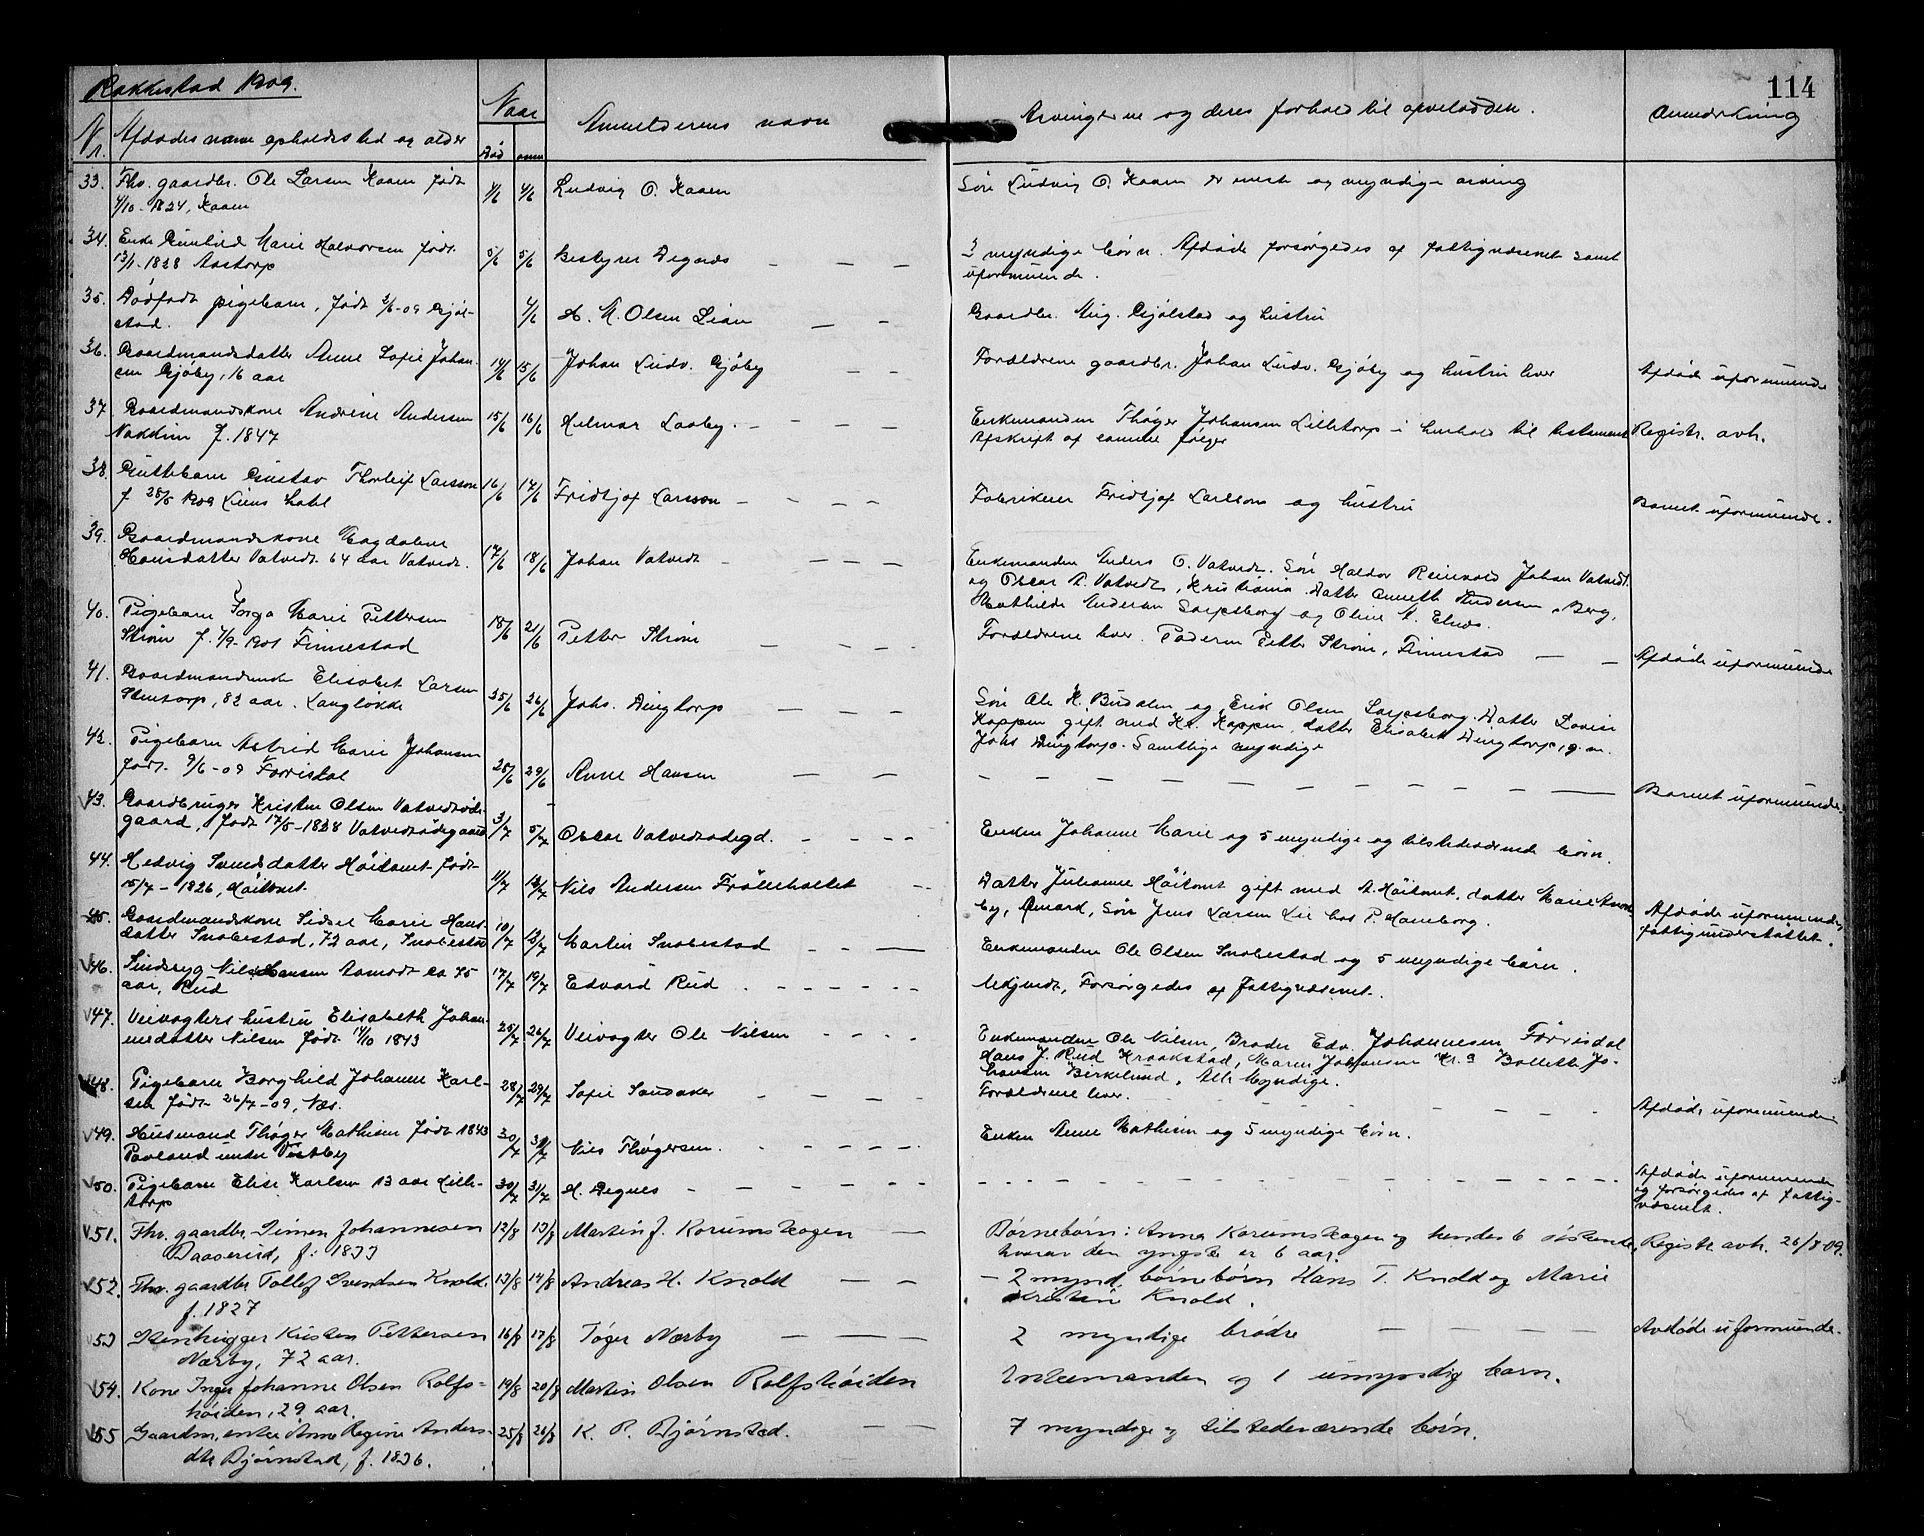 Rakkestad 1909.
114
Nr. Afdødes navn opholdssted og alder
Naar
Død anm
Anmelderens navn
Arvingerne og deres forhold til afdøde.
Anmerkning
33. Fhv. gaardbr. Ole Larsen Kaaen født 4/6 Ludvig O. Kaaen Søn Ludvig O. Kaaen er eneste og myndige arving
4/10-1824, Kaaen
34. Enke Gunhild Marie Halvorsen født 5/6 5/6 Bestyrer Degnes — — — 3 myndige børn. Afdøde forsørgedes af fattigvæsenet samt
13/1-1828 Aastorp uformuende.
35. Dødfødt pigebarn, født 3/6-09 Gjøl- 4/6 H. M. Olsen Lian — — Gaardbr. Aug. Gjølstad og hustru
stad.
36. Gaardmandsdatter Anne Sofie Johan- 14/6 15/6 Johan Ludv. Gjøby — — Forældrene gaardbr. Johan Ludv. Gjøby og hustru lever Afdøde uformuende
sen Gjøby, 16 aar
37. Gaardmandskone Andrine Andersen 15/6 16/6 Hilmar Laaby. — — — — Enkemanden Thøger Johansen Lilletorp i henhold til testament Registr. avh.
Nakkim f. 1847 Afskrift af samme følger
38. Guttebarn Gustav Thorleif Larsson 16/6 17/6 Fridtjof Larsson — — — — Fabrikeier Fridtjof Larsson og hustru Barnet uformuende.
f 25/5 1909 Liens hotel
39. Gaardmandskone Magdalene 17/6 18/6 Johan Vatvedt — — — — Enkemanden Anders O. Vatvedt. Søn Haldor Reinhold Johan Vatvedt.
Hansdatter Vatvedt 64 aar Vatvedt. og Oscar A. Vatvedt, Kristiania. Datter Anneth Andersen, Berg,
Mathilde Andersen Sarpsborg og Oline A. Elnes.
40. Pigebarn Borga Marie Pettersen 18/6 21/6 Petter Strøm — — — — Forældrene lever. Faderen Petter Strøm, Finnestad — — Afdøde uformuende
Strøm f. 7/9-1901 Finnestad
41. Gaardmandsenke Elisabet Larsen 25/6 26/6 Johs. Dingtorp — — — Søn Ole K. Budalen og Erik Olsen Sarpsborg. Datter Lovise
Stentorp, 82 aar. Langløkke Koppen gift med Kr. Koppen, datter Elisabeth Dingtorp, g. m.
Johs Dingtorp. Samtlige myndige
42. Pigebarn Astrid Marie Johansen 28/6 29/6 Anne Hansen — — — — — — — — — — — — Barnet uformuende
født 9/6-09 Førrisdal
43. Gaardbruger Kristen Olsen Vatvedtøde- 3/7 5/7 Oscar Vatvedtødegd. — — — — Enken Johanne Marie og 5 myndige og tilstedeværende børn.
gaard, født 17/5-1838 Vatvedtødegaard
44. Hedvig Svendsdatter Høitomt født 11/7 12/7 Nils Andersen Frølleholtet — Datter Julianne Høitomt gift med A. Høitomt, datter Marie
15/7-1826, Høitomt by, Ømark, Søn Jens Larsen Lie hos P. Hamborg. Afdøde uformuende,
fattigunderstøttet.
45. Gaardmandskone Sidsel Marie Hans- 10/7 13/7 Martin Snobestad — — — Enkemanden Ole Olsen Snobestad og 5 myndige børn.
datter Snobestad, 72 aar, Snobestad
46. Sindssyg Nils Hansen Aamodt ca 75 17/7 19/7 Edvard Rud — — — — — Ukjendt, Forsørgedes af fattigvæsenet.
aar, Rud
47. Veivogters hustru Elisabeth Johan- 25/7 26/7 Veivogter Ole Nilsen — — — Enkemanden Ole Nilsen, Broder Edv. Johannesen Førrisdal
nesdatter Nilsen født 14/10 1843 Hans J. Rud Kraakstad, Maren Johansen Kr.a Bollette Jo-
hansen Birkelund. Alle Myndige.
48. Pigebarn Borghild Johanne Karl- 28/7 29/7 Sofie Sandaker — — — — Forældrene lever. — — — — Afdøde uformuende
sen født 26/7-09, Næs.
49. Husmand Thøger Mathisen født 1843 30/7 31/7 Nils Thøgersen. — — — — Enken Anne Mathisen og 5 myndige børn.
Pavland under Vestby
50. Pigebarn Elise Karlsen 13 aar Lille- 30/7 31/7 H. Degnes — — — — — — — — — Afdøde uformuende
torp og forsørgedes af fattig-
væsenet.
51. Fhv. gaardbr. Simen Johannesen 12/8 13/8 Martin J. Korumskogen — Børnebørn: Anna Korumskogen og hendes 6 søskende, Registr. avh. 26/8 09.
Daaserud, f: 1833 hvorav den yngste er 6 aar.
52. Fhv. gaardbr. Tollef Svendsen Knold. 13/8 14/8 Andreas H. Knold — — — 2 mynd. børnebørn Hans T. Knold og Marie
f. 1827 Kristine Knold.
53 Stenhugger Kristen Pettersen 16/8 17/8 Tøger Nærby — — — 2 myndige brødre — — — — Avdøde uformuende.
Nærby, 72 aar.
54. Kone Inger Johanne Olsen Rolfs- 19/8 20/8 Martin Olsen Rolfshøiden Enkemanden og 1 umyndig barn.
høiden, 29 aar.
55 Gaardm. enke Anne Regine Anders- 25/8 26/8 K. P. Bjørnstad. — — 7 myndige og tilstedeværende børn.
dtr Bjørnstad, f. 1836.